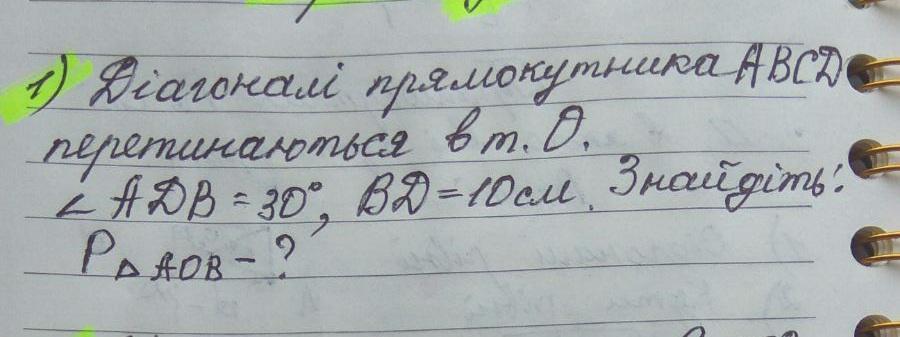 1) Діагоналі прямокутника ABCD
перетинаються в т. О.
∠ ADB = 30°, BD = 10 см. Знайдіть:
P△AOB - ?